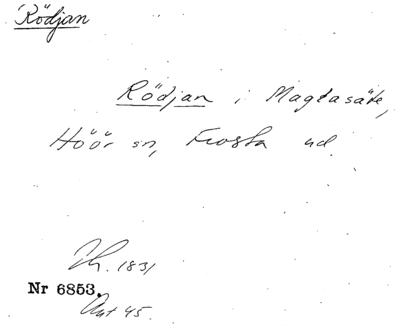 Rödjan
Rödjan i Magtasäte,
Höör sn, Frosta hd
1831
Nr 6853.
Ant 45.